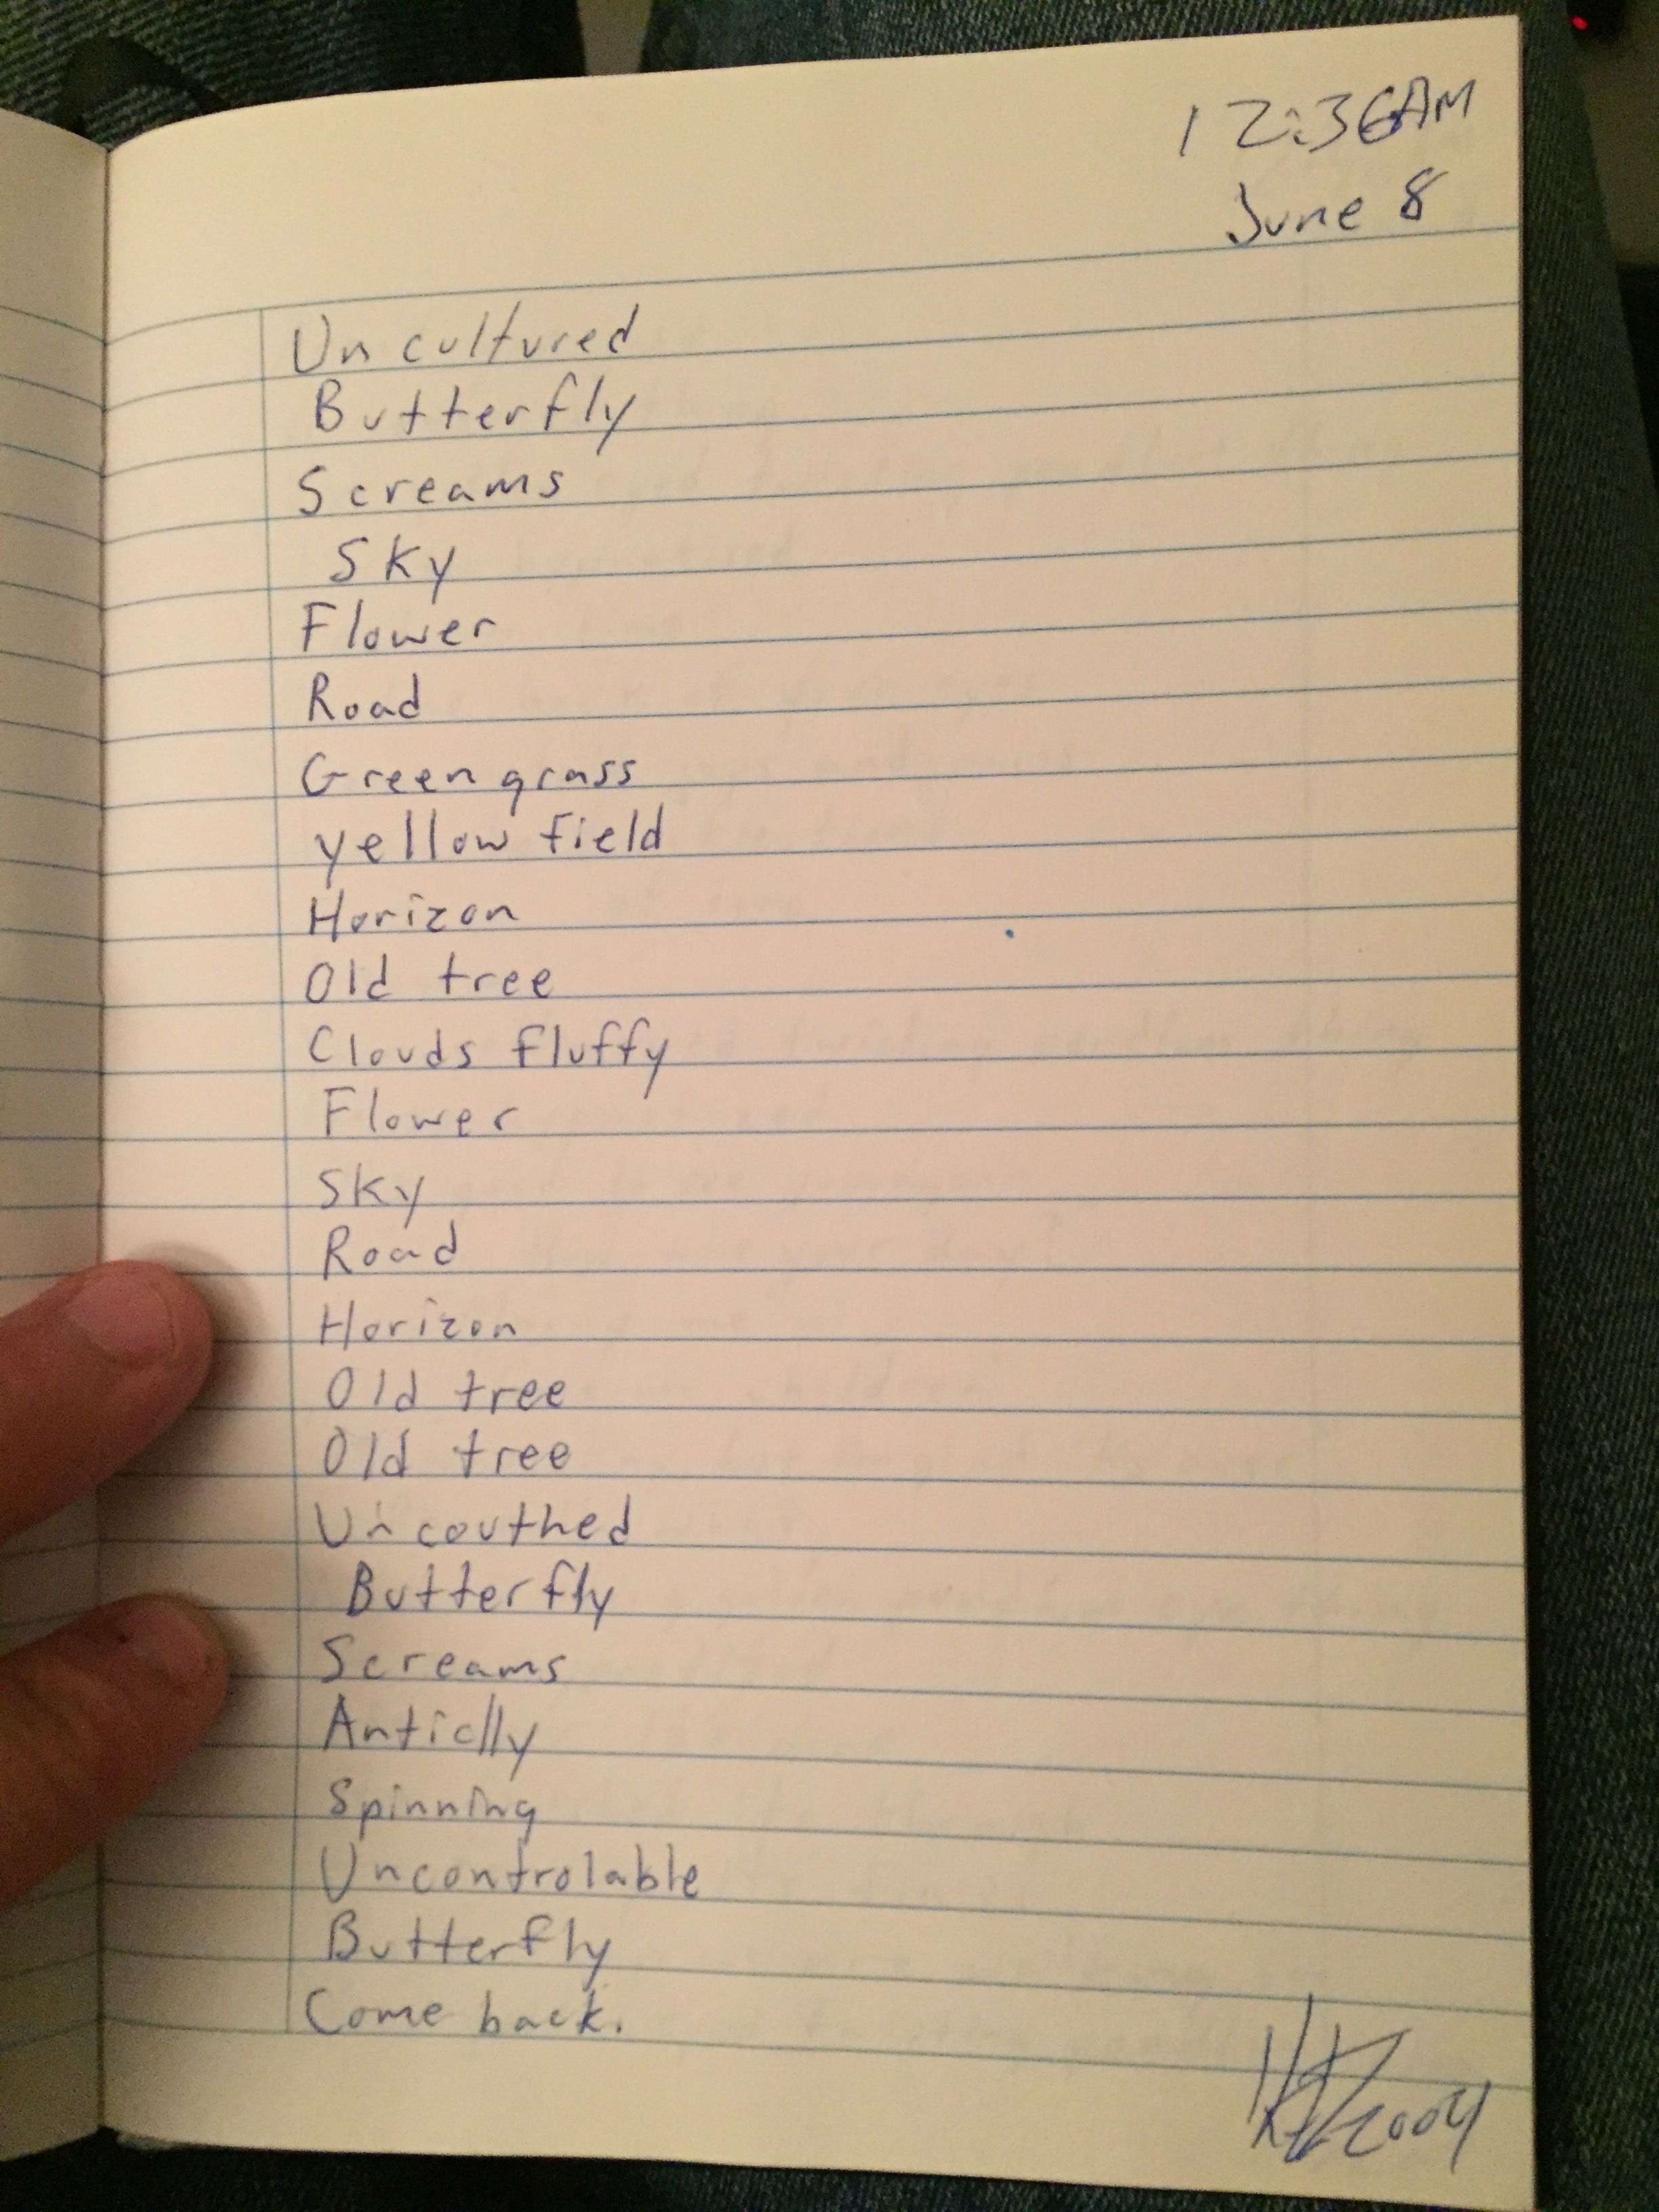 12:36AM
June 8
Uncultured
Butterfly
Screams
Sky
Flower
Road
Green grass
yellow field
Horizon
Old tree
Clouds fluffy
Flower
Sky
Road
Horizon
Old tree
Old tree
Uncouthed
Butterfly
Screams
Anticlly
Spinning
Uncontrolable
Butterfly
Come back.
2004